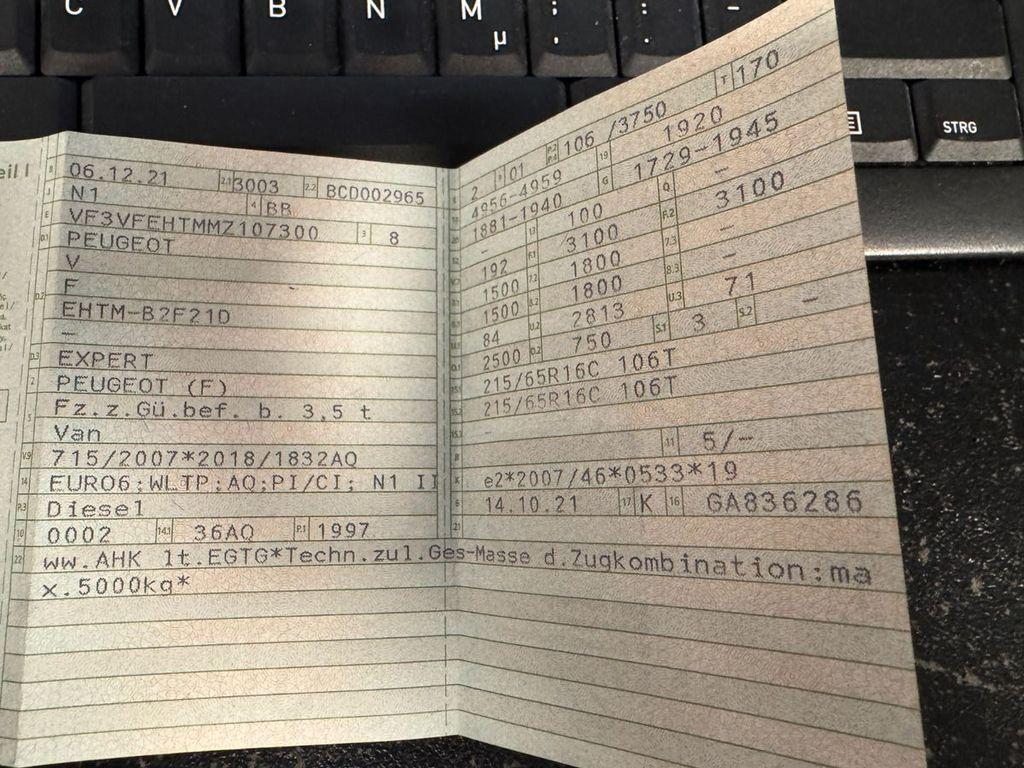 C V B N M ; : _
µ , .
STRG
eil I
B 06.12.21 2.1 3003 2.2 BCD002965
J N1 4 BB
E VF3VFEHTMMZ107300 3 8
D.1 PEUGEOT
V
F
D.2 EHTM-B2F21D
–
D.3 EXPERT
2 PEUGEOT (F)
5 Fz.z.Gü.bef. b. 3,5 t
Van
V.9 715/2007*2018/1832AQ
14 EURO6;WLTP;AQ;PI/CI; N1 II
P.3 Diesel
10 0002 14.1 36AQ P.1 1997
22 ww.AHK lt.EGTG*Techn.zul.Ges-Masse d.Zugkombination:ma
x.5000kg*
2 9 01 P.2 P.4 106 /3750 T 170
4956-4959 19 1920
1881-1940 G 1729-1945
– 13 100 Q –
192 F.1 3100 F.2 3100
1500 7.2 1800 7.3 –
1500 8.2 1800 8.3 –
84 U.2 2813 U.3 71
2500 O.2 750 S.1 3 S.2 –
215/65R16C 106T
215/65R16C 106T
–
11 5/–
K e2*2007/46*0533*19
6 14.10.21 17 K 16 GA836286
21